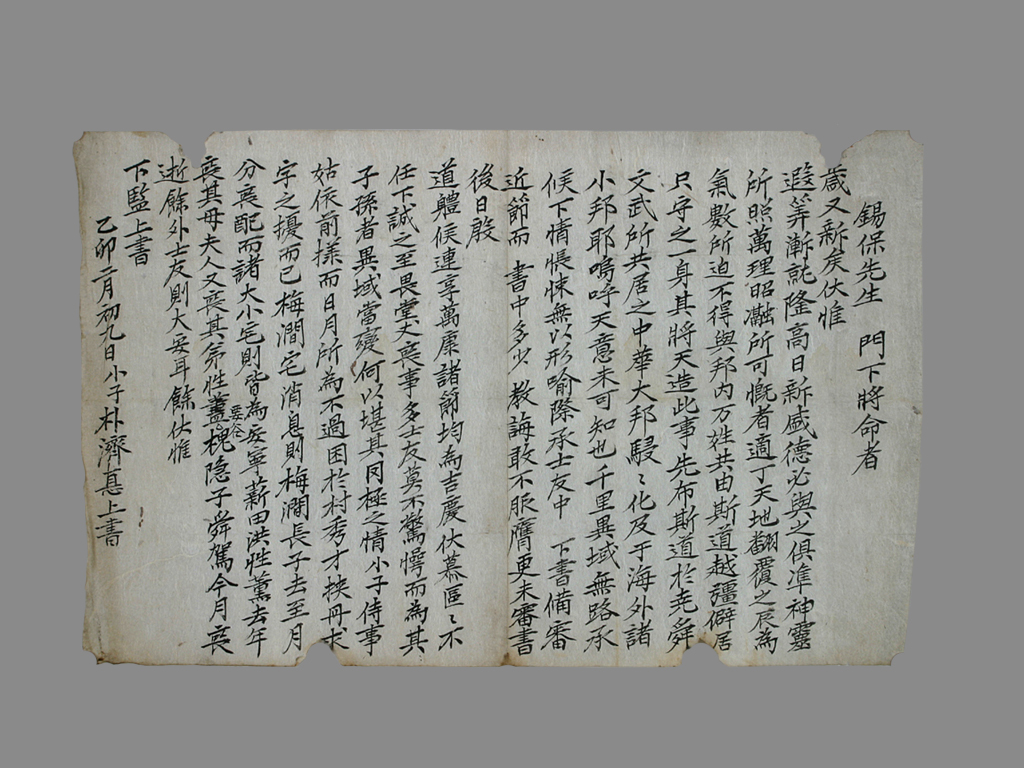 錫保先生 門下將命者
歲又新矣伏惟
遐筭漸躋隆高日新盛德必與之俱準神靈
所照萬理昭瀜所可慨者適丁天地飜覆之辰為
氣數所迫不得與邦內万姓共由斯道越疆僻居
只守之一身其將天造此事先布斯道於堯舜
文武所共居之中華大邦駸〻化及于海外諸
小邦耶嗚呼天意未可知也千里異域無路承
候下情悵悚無以形喻際承士友中 下書備審
近節而 書中多少 教誨敢不服膺更未審書
後日殷
道體候連享萬康諸節均為吉慶伏慕區〻不
任下誠之至畏堂丈喪事多士友莫不驚愕而為其
子孫者異域當變何以堪其罔極之情小子侍事
姑依前樣而日月所為不過困於村秀才挾冊求
字之擾而已梅澗宅消息則梅澗長子去至月
分喪配而諸大小宅則皆為安寧薪田洪性薰去年
喪其母夫人又喪其弟性藎槐隱子舜駕今月喪
逝餘外士友則大安耳餘伏惟
下監上書
乙卯二月初九日小子朴濟 上書